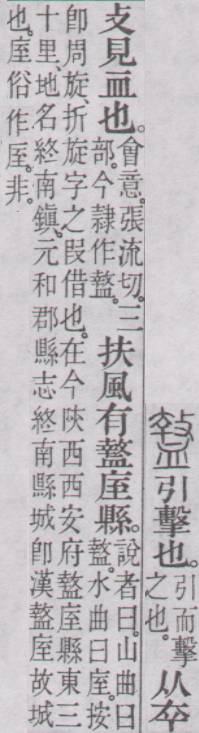 盩引擊也。引而擊之也。从㚔
攴見血也。會意。張流切。三部。今隸作盩。扶風有盩庢縣。說者曰。山曲曰盩。水曲曰庢。按
卽周旋、折旋字之叚借也。在今陝西西安府盩庢縣東三
十里、地名終南鎭。元和郡縣志終南縣城卽漢盩庢故城
也。庢俗作厔。非。